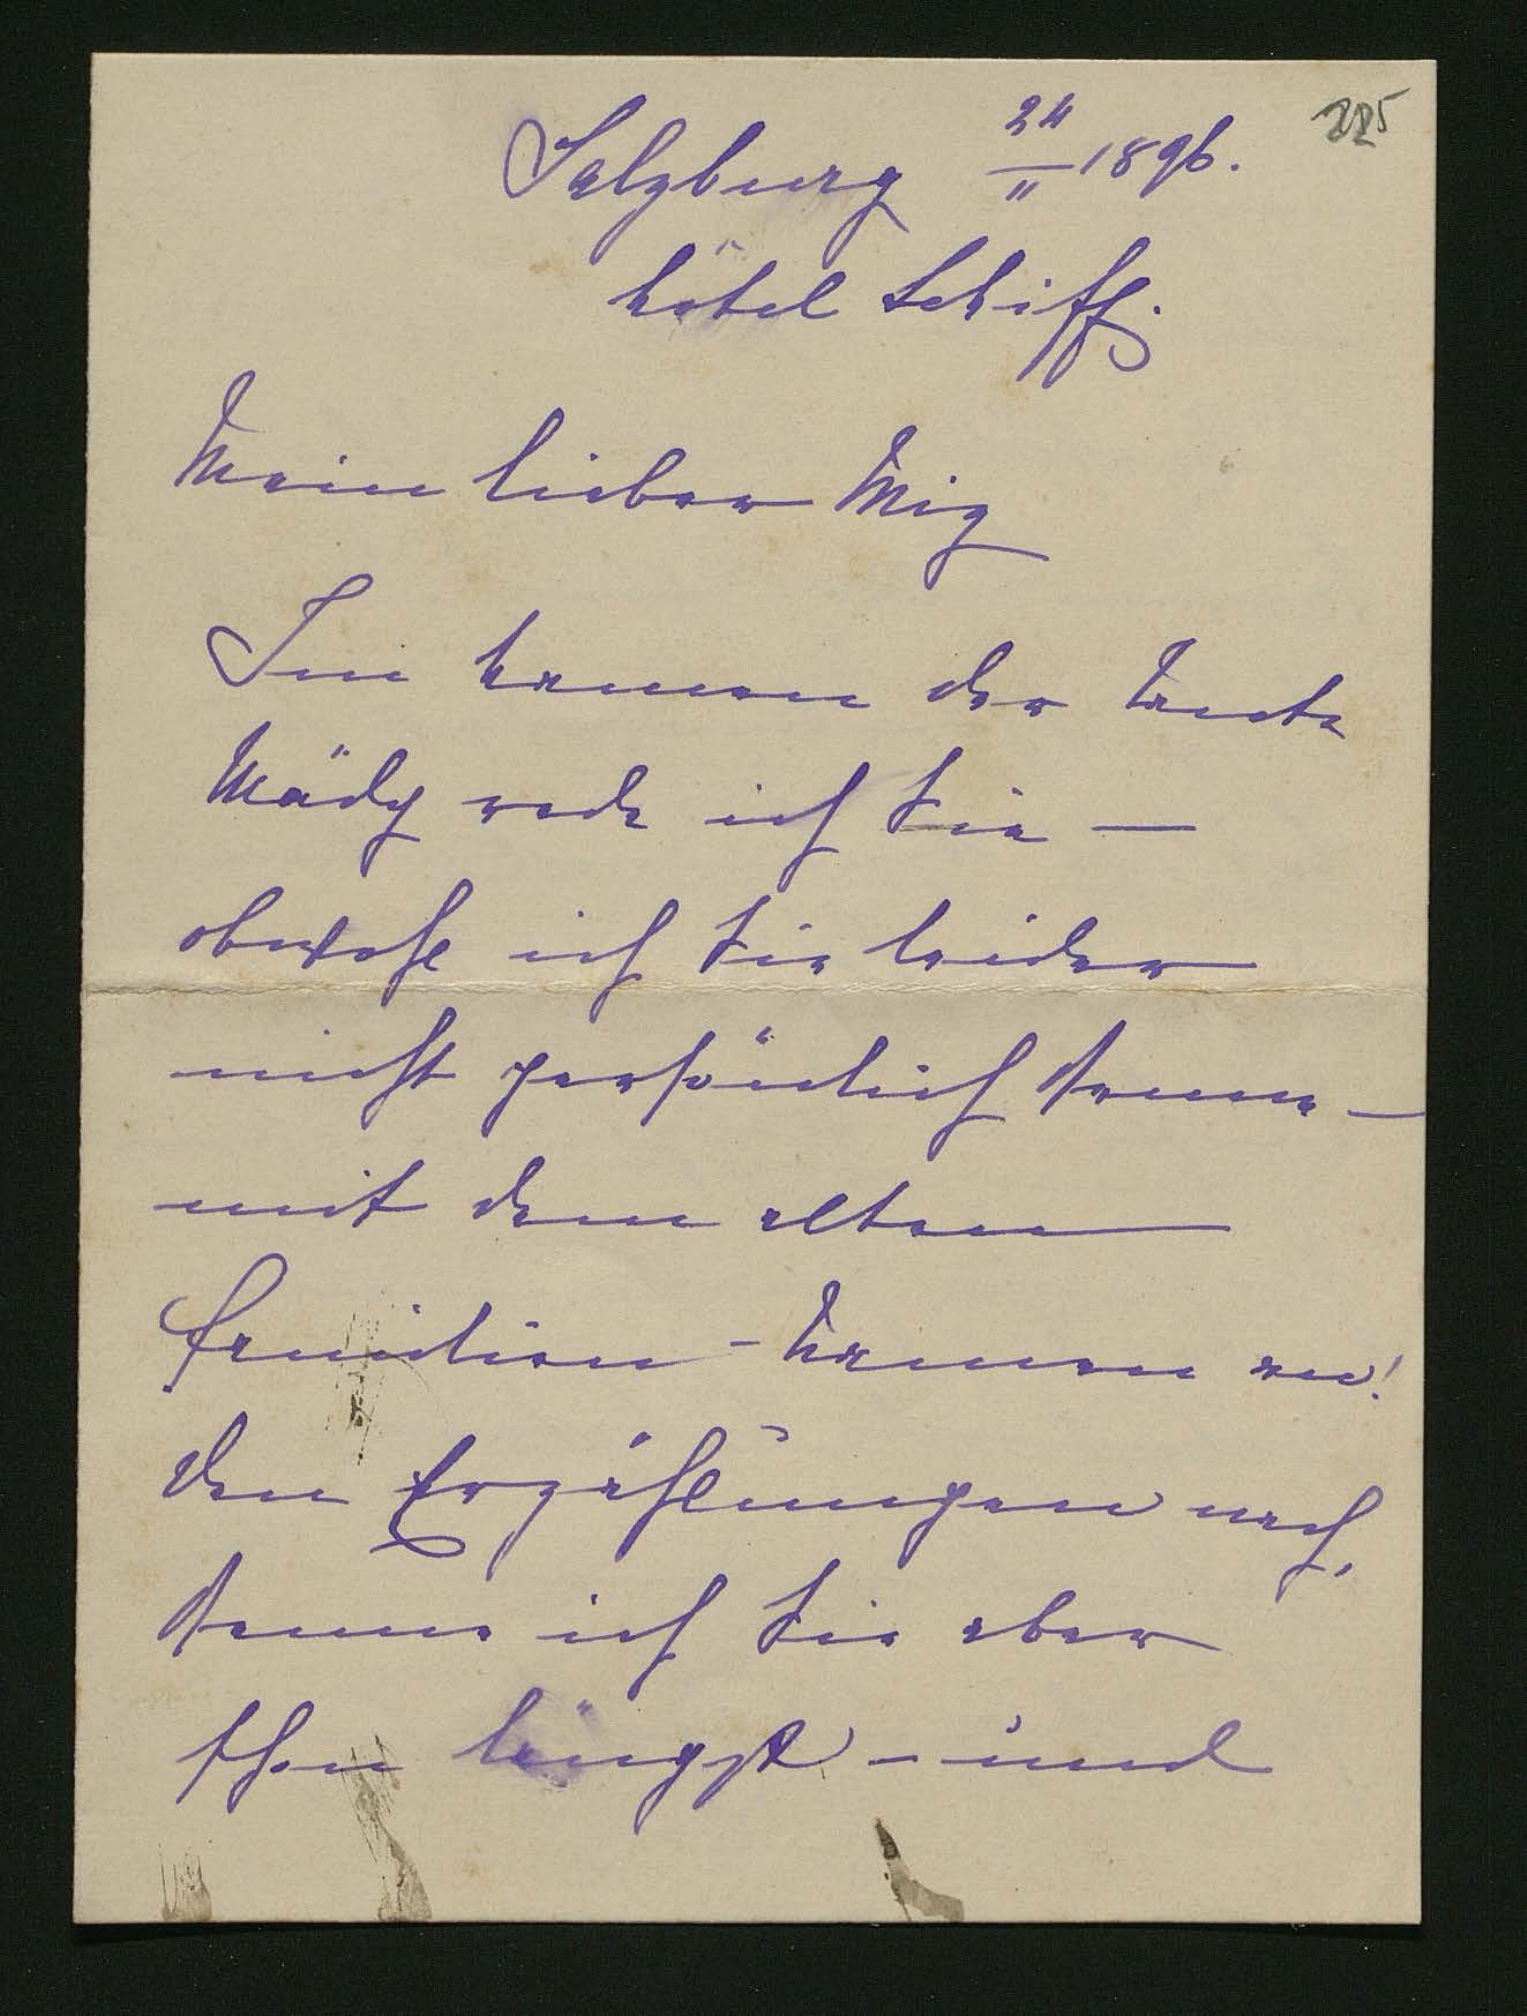 225
Salzburg 24/11 1896.
Hôtel Schiff.
Mein lieber Mig
Im Namen der Tante
Mädy rede ich Sie —
obwohl ich Sie leider
nicht persönlich kenne —
mit dem alten
Familien - Namen an!
Den Erzählungen nach,
kenne ich Sie aber
schon längst – und